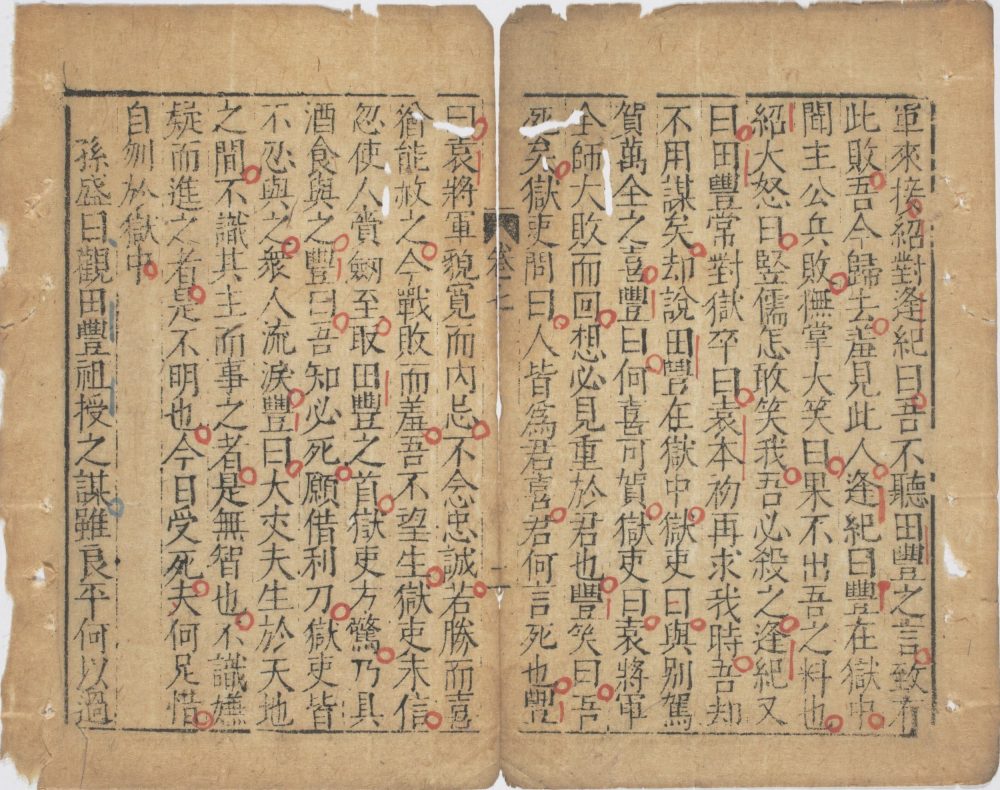 軍來接紹對逢紀曰吾不聽田豐之言致有
此敗吾今歸去羞見此人逢紀曰豐在獄中
聞主公兵敗撫掌大笑曰果不出吾之料也
紹大怒曰竪儒怎敢笑我吾必殺之逢紀又
曰田豐常對獄卒曰袁本初再求我時吾却
不用謀矣却說田豐在獄中獄吏曰與別駕
賀萬全之喜豐曰何喜可賀獄吏曰袁將軍
全師大敗而回想必見重於君也豐笑曰吾
死矣獄吏問曰人皆爲君喜君何言死也豐
卷之七
二
曰袁將軍貌寬而內忌不念忠誠若勝而喜
猶能赦之今戰敗而羞吾不望生獄吏未信
忽使人賫劒至取田豐之首獄吏方驚乃具
酒食與之豐曰吾知必死願借利刀獄吏皆
不忍與之衆人流淚豐曰大丈夫生於天地
之間不識其主而事之者是無智也不識嫌
疑而進之者是不明也今日受死夫何足惜
自刎於獄中
孫盛曰觀田豐祖授之謀雖良平何以過